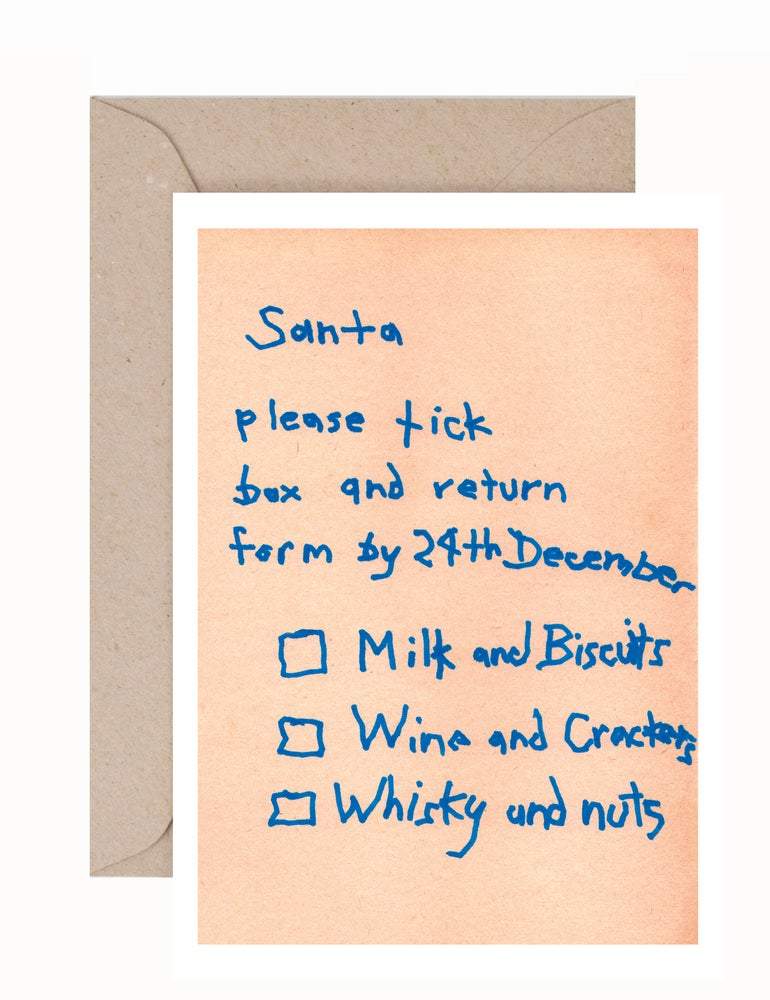 Santa
please tick
box and return
form by 24th December
Milk and Biscuits
Wine and Crackers
Whisky and nuts